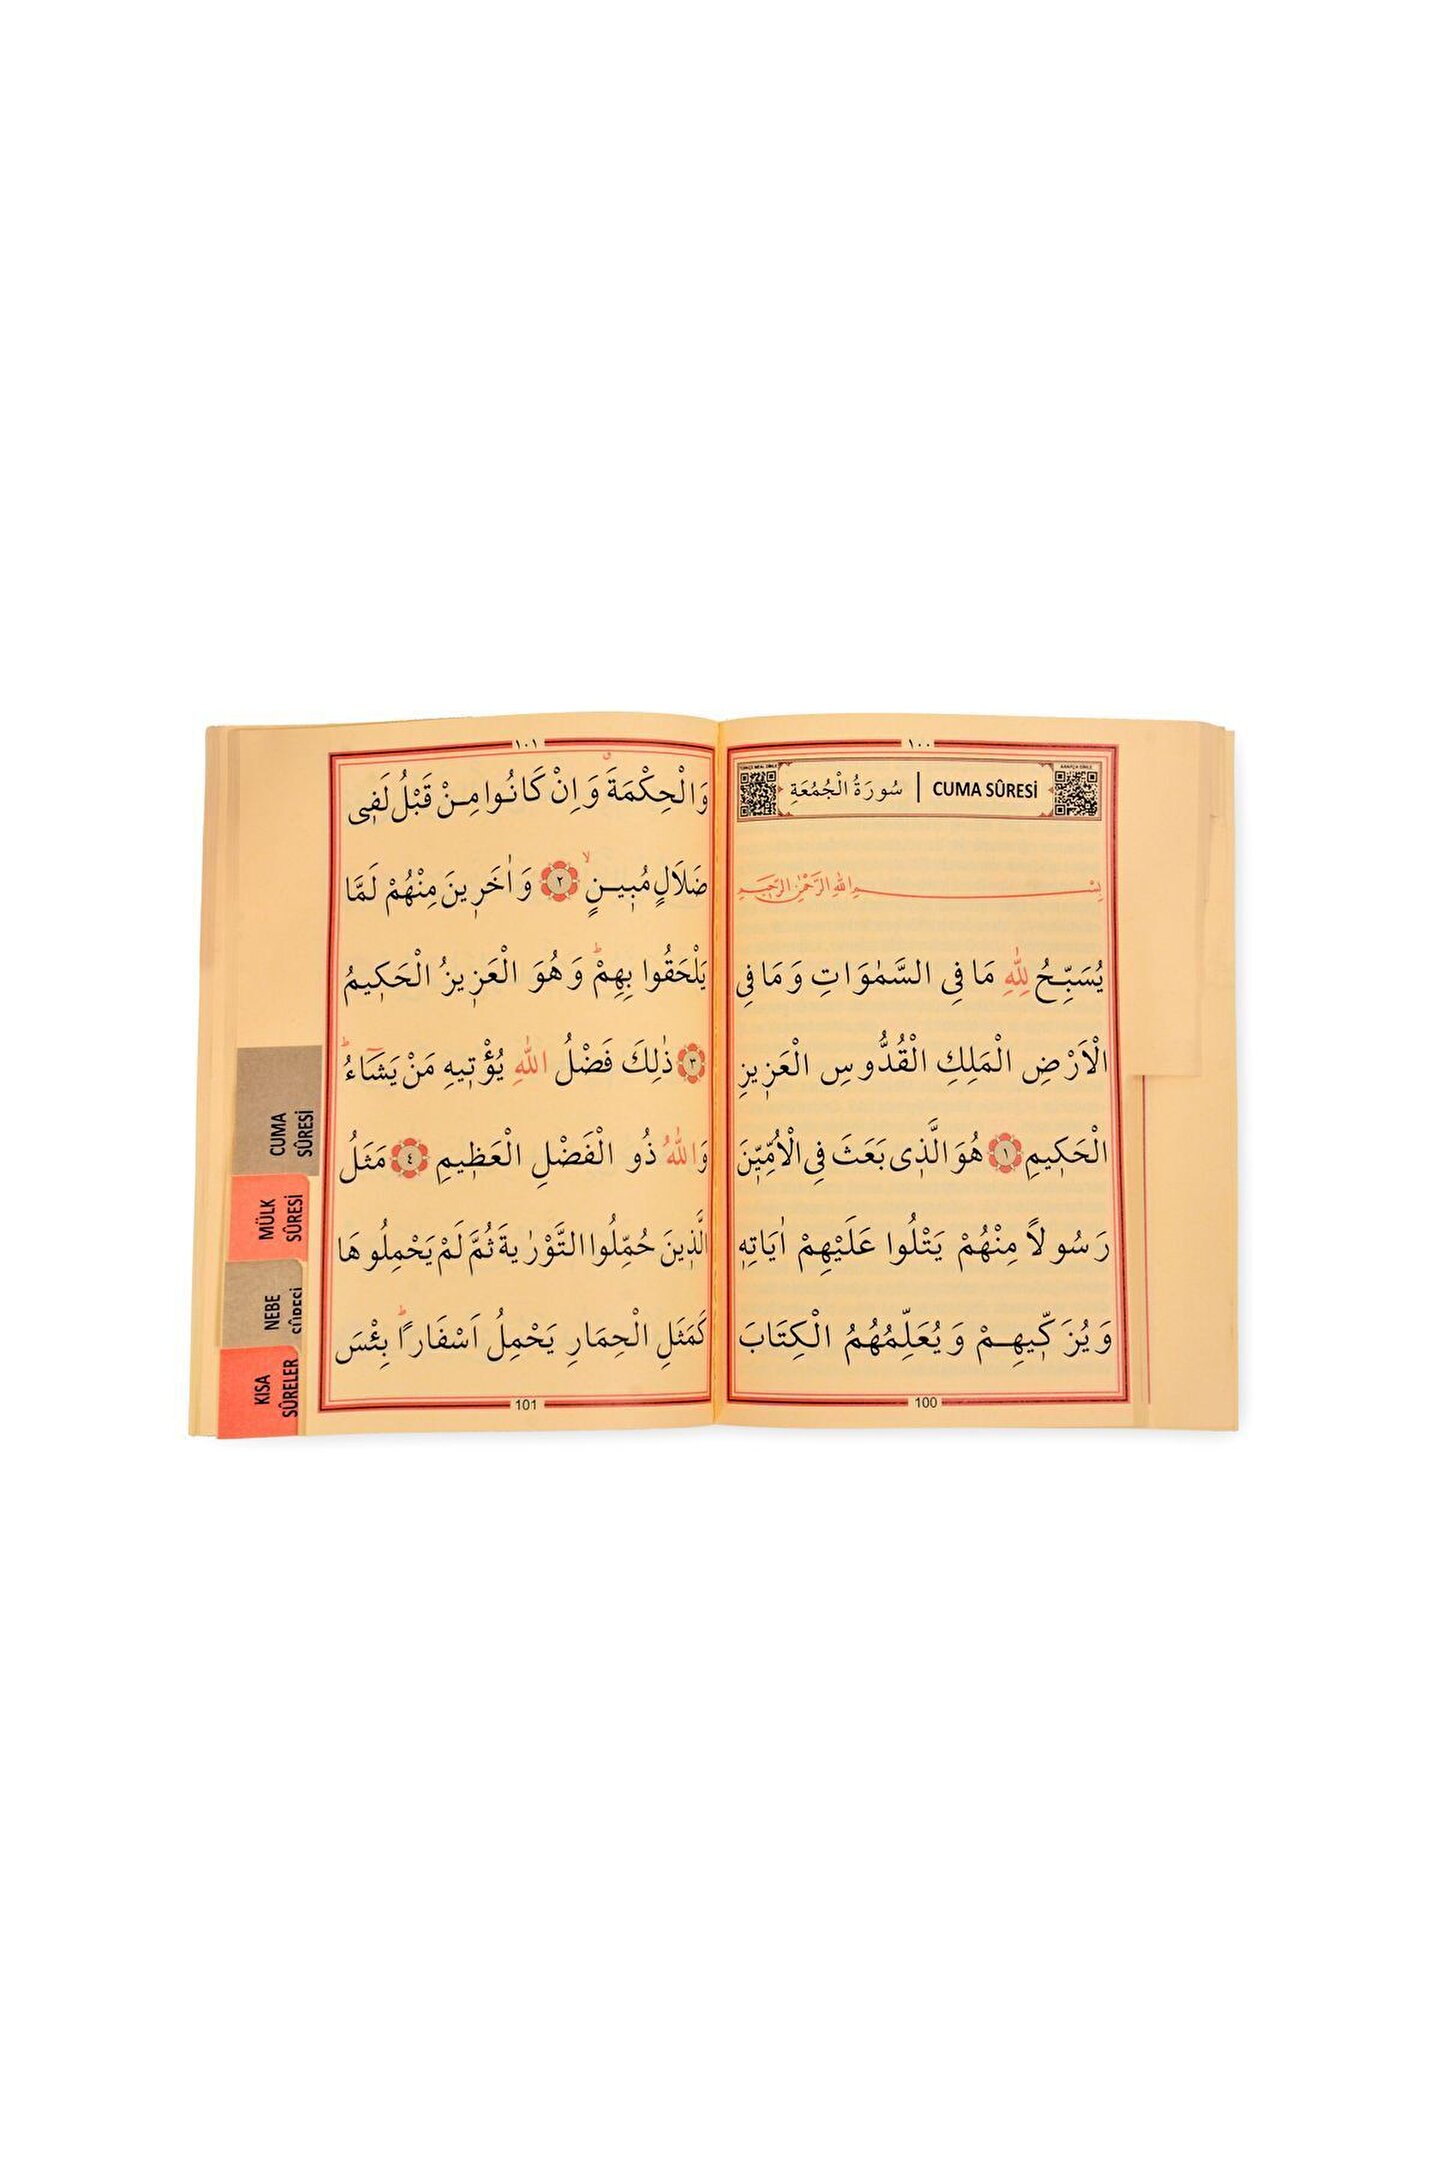 ١٠٠
TÜRKÇE MEAL DİNLE
سُورَةُ الْجُمُعَةِ | CUMA SÛRESİ
ARAPÇA DİNLE
بِسْمِ اللهِ الرَّحْمٰنِ الرَّحِيمِ
يُسَبِّحُ لِلّٰهِ مَا فِى السَّمٰوَاتِ وَمَا فِى
الْاَرْضِ الْمَلِكِ الْقُدُّوسِ الْعَزٖيزِ
الْحَكٖيمِ ١ هُوَ الَّذٖى بَعَثَ فِى الْاُمِّيّٖنَ
رَسُولاً مِنْهُمْ يَتْلُوا عَلَيْهِمْ اٰيَاتِهٖ
وَيُزَكّٖيهِمْ وَيُعَلِّمُهُمُ الْكِتَابَ
100
١٠١
وَالْحِكْمَةَ وَاِنْ كَانُوا مِنْ قَبْلُ لَفٖى
ضَلَالٍ مُبٖينٍ ٢ وَاٰخَرٖينَ مِنْهُمْ لَمَّا
يَلْحَقُوا بِهِمْ وَهُوَ الْعَزٖيزُ الْحَكٖيمُ
٣ ذٰلِكَ فَضْلُ اللّٰهِ يُؤْتٖيهِ مَنْ يَشَٓاءُ
وَاللّٰهُ ذُو الْفَضْلِ الْعَظٖيمِ ٤ مَثَلُ
الَّذٖينَ حُمِّلُوا التَّوْرٰيةَ ثُمَّ لَمْ يَحْمِلُوهَا
كَمَثَلِ الْحِمَارِ يَحْمِلُ اَسْفَاراً بِئْسَ
101
CUMA
SÛRESİ
MÜLK
SÛRESİ
NEBE
SÛRESİ
KISA
SÛRELER